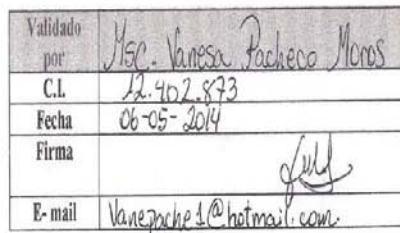 Validado por MSc. Vanesa Pacheco Moros
C.I. 12.402.873
Fecha 06-05-2014
Firma
E-mail Vanepache1@hotmail.com.